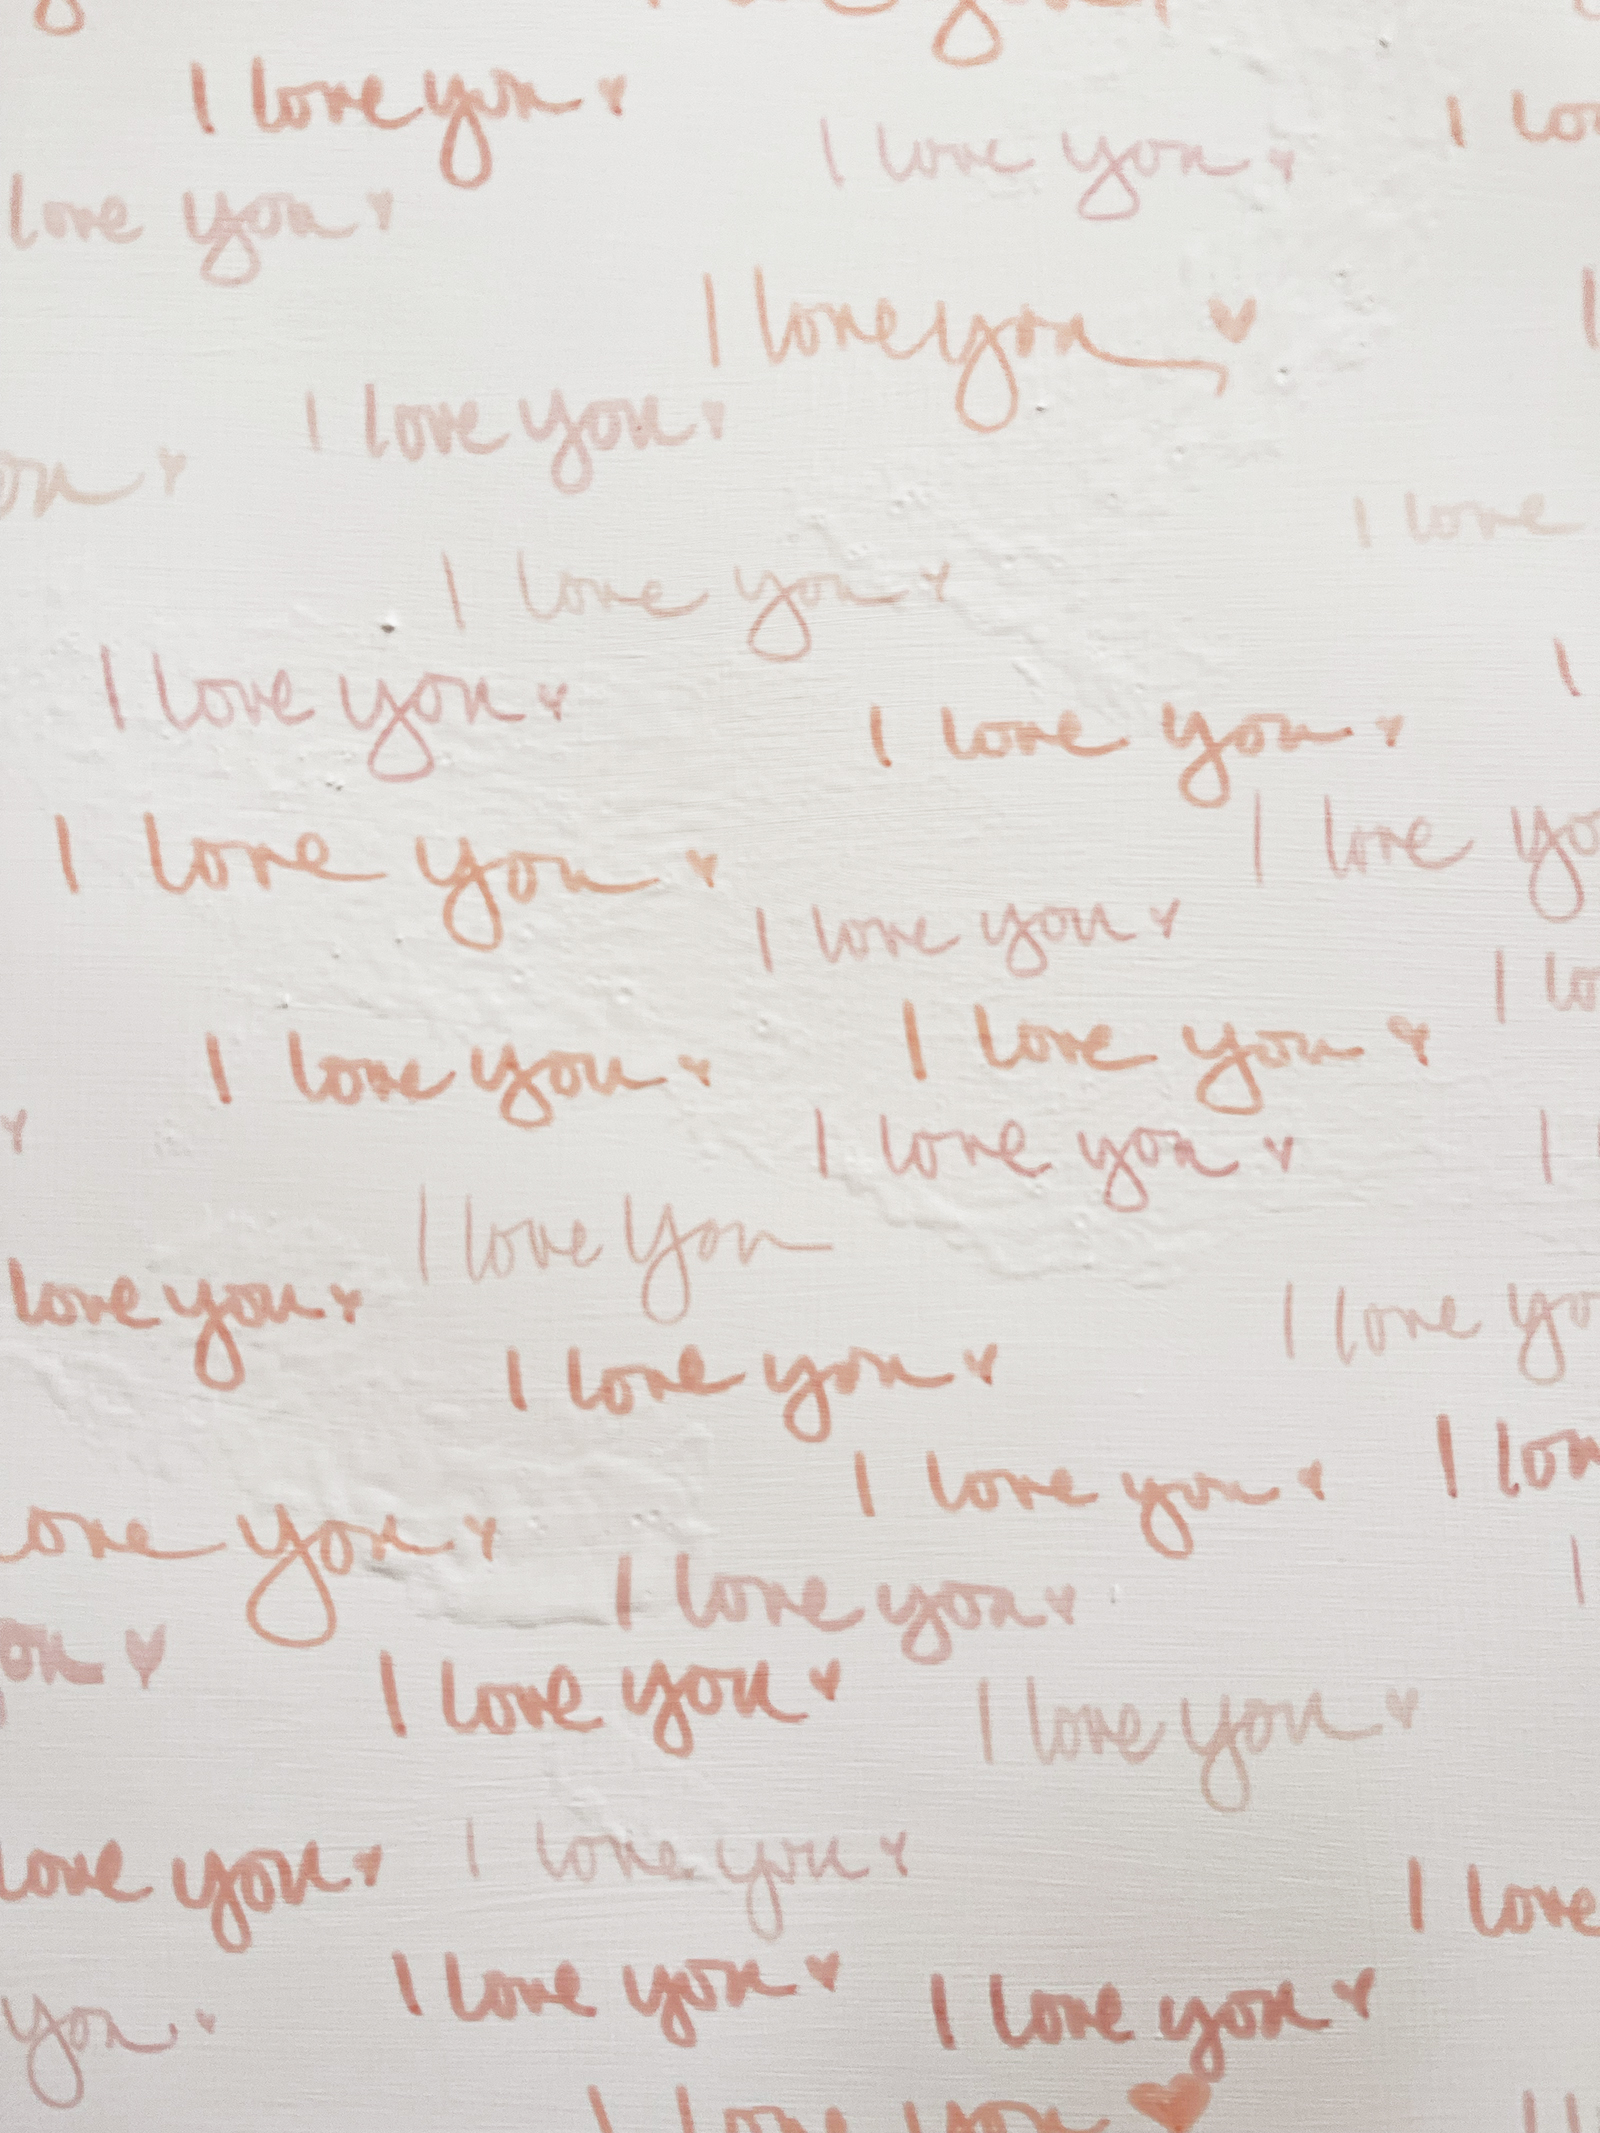 I love you
I love you
I lo
love you
I love you
I love you
ou
I love
I love you
I love you
I love you
I love you
I love yo
I love you
I lo
I love you
I love you
I love you
I love you
love you
I love yo
I love you
I lov
I love you
ove you
I love you
ou
I love you
I love you
I love you
love you
I love
I love you
I love you
you
I love you